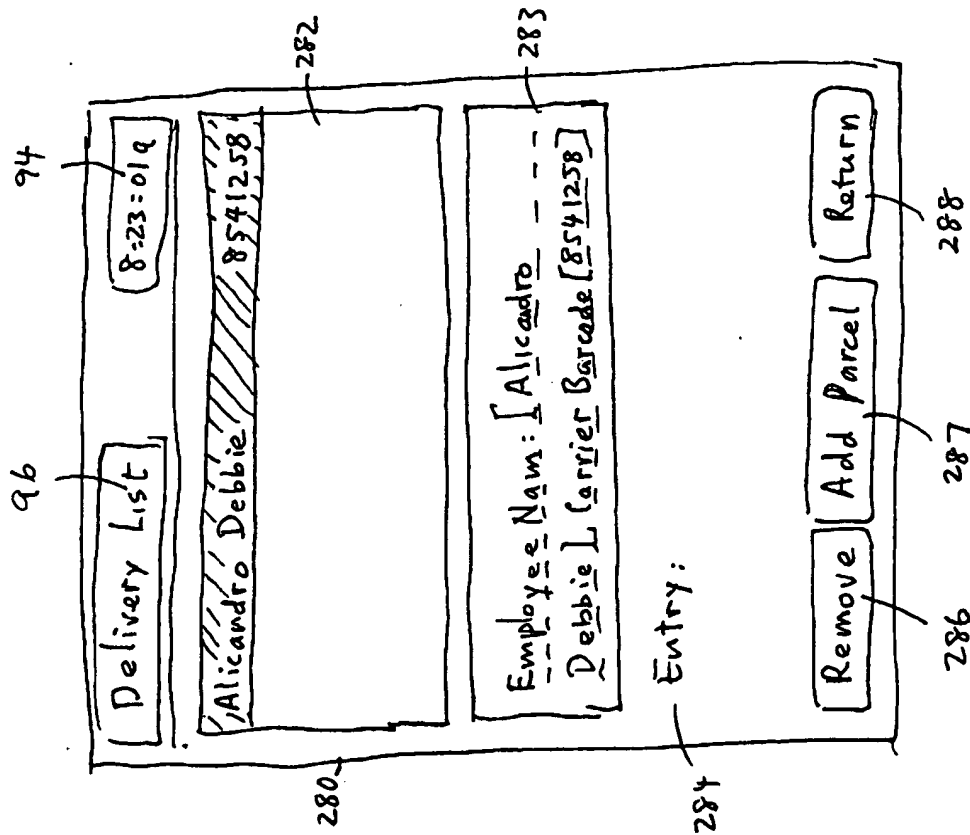 96
94
Delivery List
8:23:01a
Alicandro Debbie 8541258
282
280
283
Employee Nam: [Alicandro
Debbie] Carrier Barcode [8541258]
Entry:
284
Remove
Add Parcel
Return
286
287
288